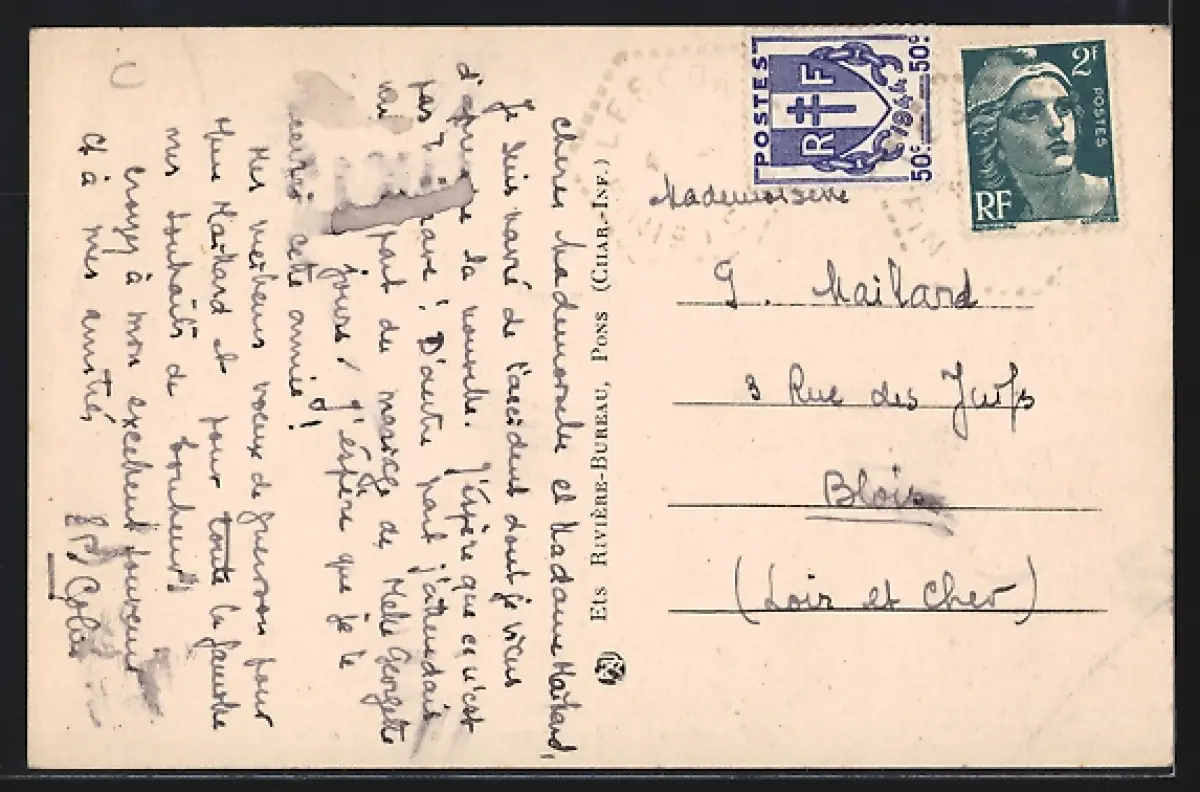 Chères Mademoiselle et Madame Maillard,
Je suis navré de l'accident dont je viens
d'apprendre la nouvelle. J'espère que ce n'est
pas grave! D'autre part j'attendais
un part du mariage de Melle Georgette
jours, j'éspère que je le
cette année!
Mes meilleurs voeux de guerison pour
Mme Maillard et pour toute la famille
mes souhaits de bonheur,
Croyez à mon excellent souvenir
et à mes amitiés
Ets Rivière-Bureau, Pons (Char.-Inf.)
POSTES
RF
50c 1944 50c
2f
POSTES
RF
Mademoiselle
G. Maillard
3 Rue des Juifs
Blois
(Loir et Cher)